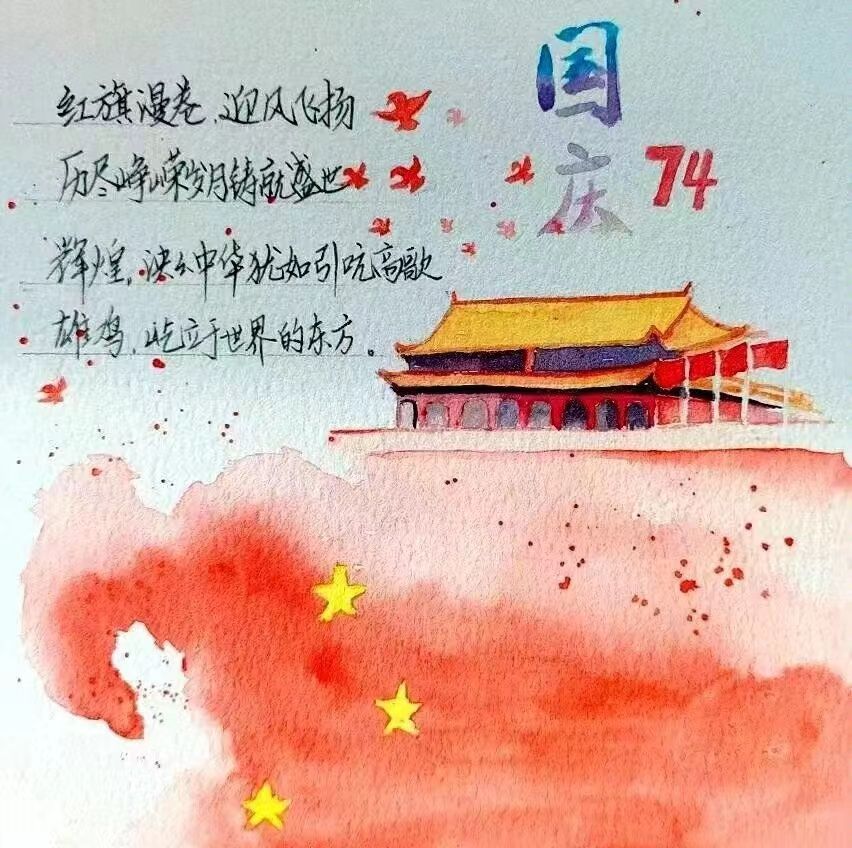 红旗漫卷,迎风飞扬
历尽峥嵘岁月铸就盛世
辉煌,泱泱中华犹如引吭高歌
雄鸡,屹立于世界的东方。
国庆
74